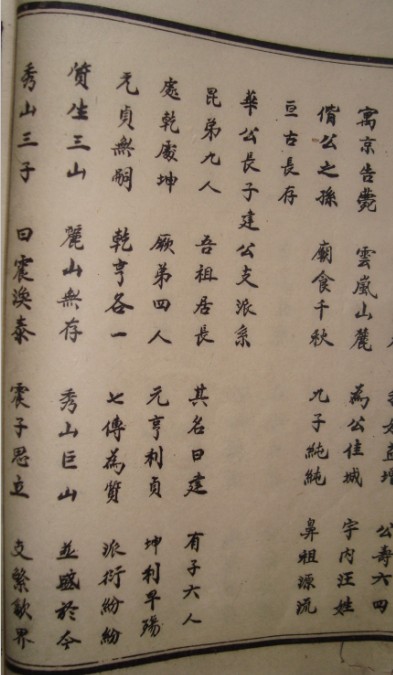 公壽六四
寓京告薨 雲嵐山麓 為公佳城 宇內汪姓
偕公之孫 廟食千秋 九子純純 鼻祖源流
亘古長存
華公長子建公支派系
昆弟九人 吾祖居長 其名曰建 有子六人
處乾處坤 厥弟四人 元亨利貞 坤利早殤
元貞無嗣 乾亨各一 七傳為質 派衍紛紛
質生三山 麗山無存 秀山巨山 並盛於今
秀山三子 曰震渙泰 震子思立 支繁歙界